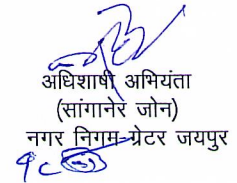 अधिशाषी अभियंता
(सांगानेर जोन)
नगर निगम-ग्रेटर जयपुर